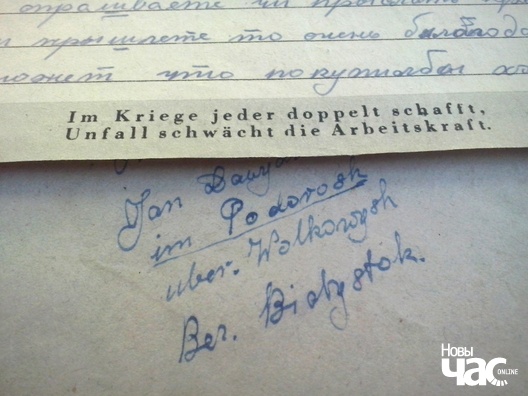 опрашиваете ли прислать
и пришлете то очень благода
может что покушалбы
Im Kriege jeder doppelt schafft,
Unfall schwächt die Arbeitskraft.
Jan
im Podorosk
uber. Wolkowysk
Ber. Bialystok.
НОВЫ
ЧАС
ONLINE